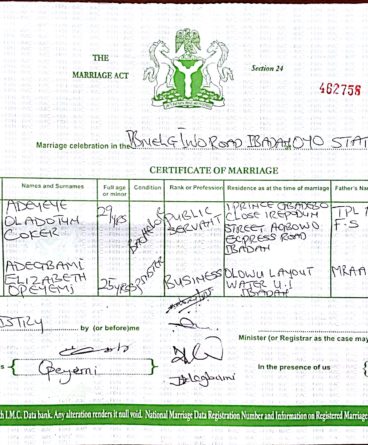 THE
MARRIAGE ACT
Section 24
482758
Marriage celebration in the IWO ROAD IBADAN OYO STAT
CERTIFICATE OF MARRIAGE
Names and Surnames
Full age or minor
Condition
Rank or Profession
Residence as at the time of marriage
Father's Na
ADEYEYE
OLADOTUN
COKER
29 yrs
BACHELOR
PUBLIC
SERVANT
1 PRINCE GBADEBO
CLOSE IREPODUN
STREET AGBOWO
EXPRESS ROAD
IBADAN
TPL
F.S
ADEGBAMI
ELIZABETH
OPEYEMI
25 yrs
SPINSTER
BUSINESS
OLOWU LAYOUT
WATER U.I
IBADAN
MR A A
by (or before)me
Minister (or Registrar as the case may
Opeyemi
In the presence of us
h LM.C. Data bank. Any alteration renders it null void. National Marriage Data Registration Number and Information on Registered Marriage